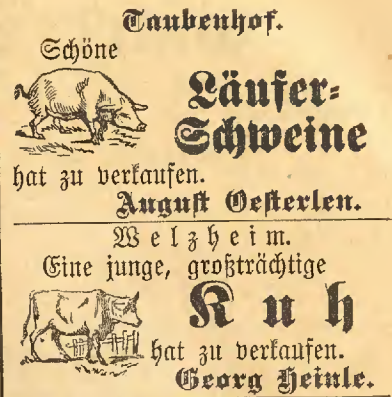 Taubenhof.
Schöne
Läufer-
Schweine
hat zu verkaufen.
August Oesterlen.
Welzheim.
Eine junge, großträchtige
Kuh
hat zu verkaufen.
Georg Heinle.